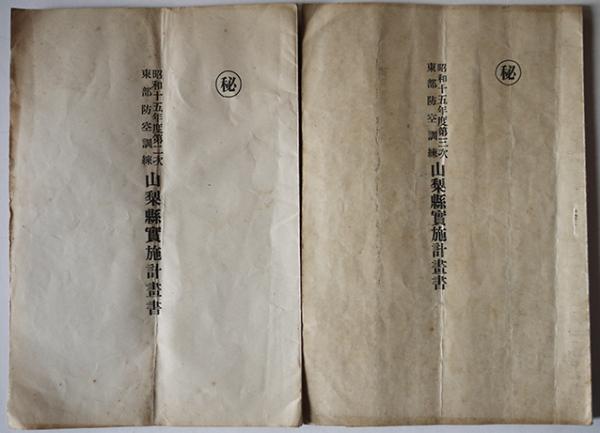 ㊙
昭和十五年度第二次
東部防空訓練
山梨縣實施計畫書
㊙
昭和十五年度第三次
東部防空訓練
山梨縣實施計畫書